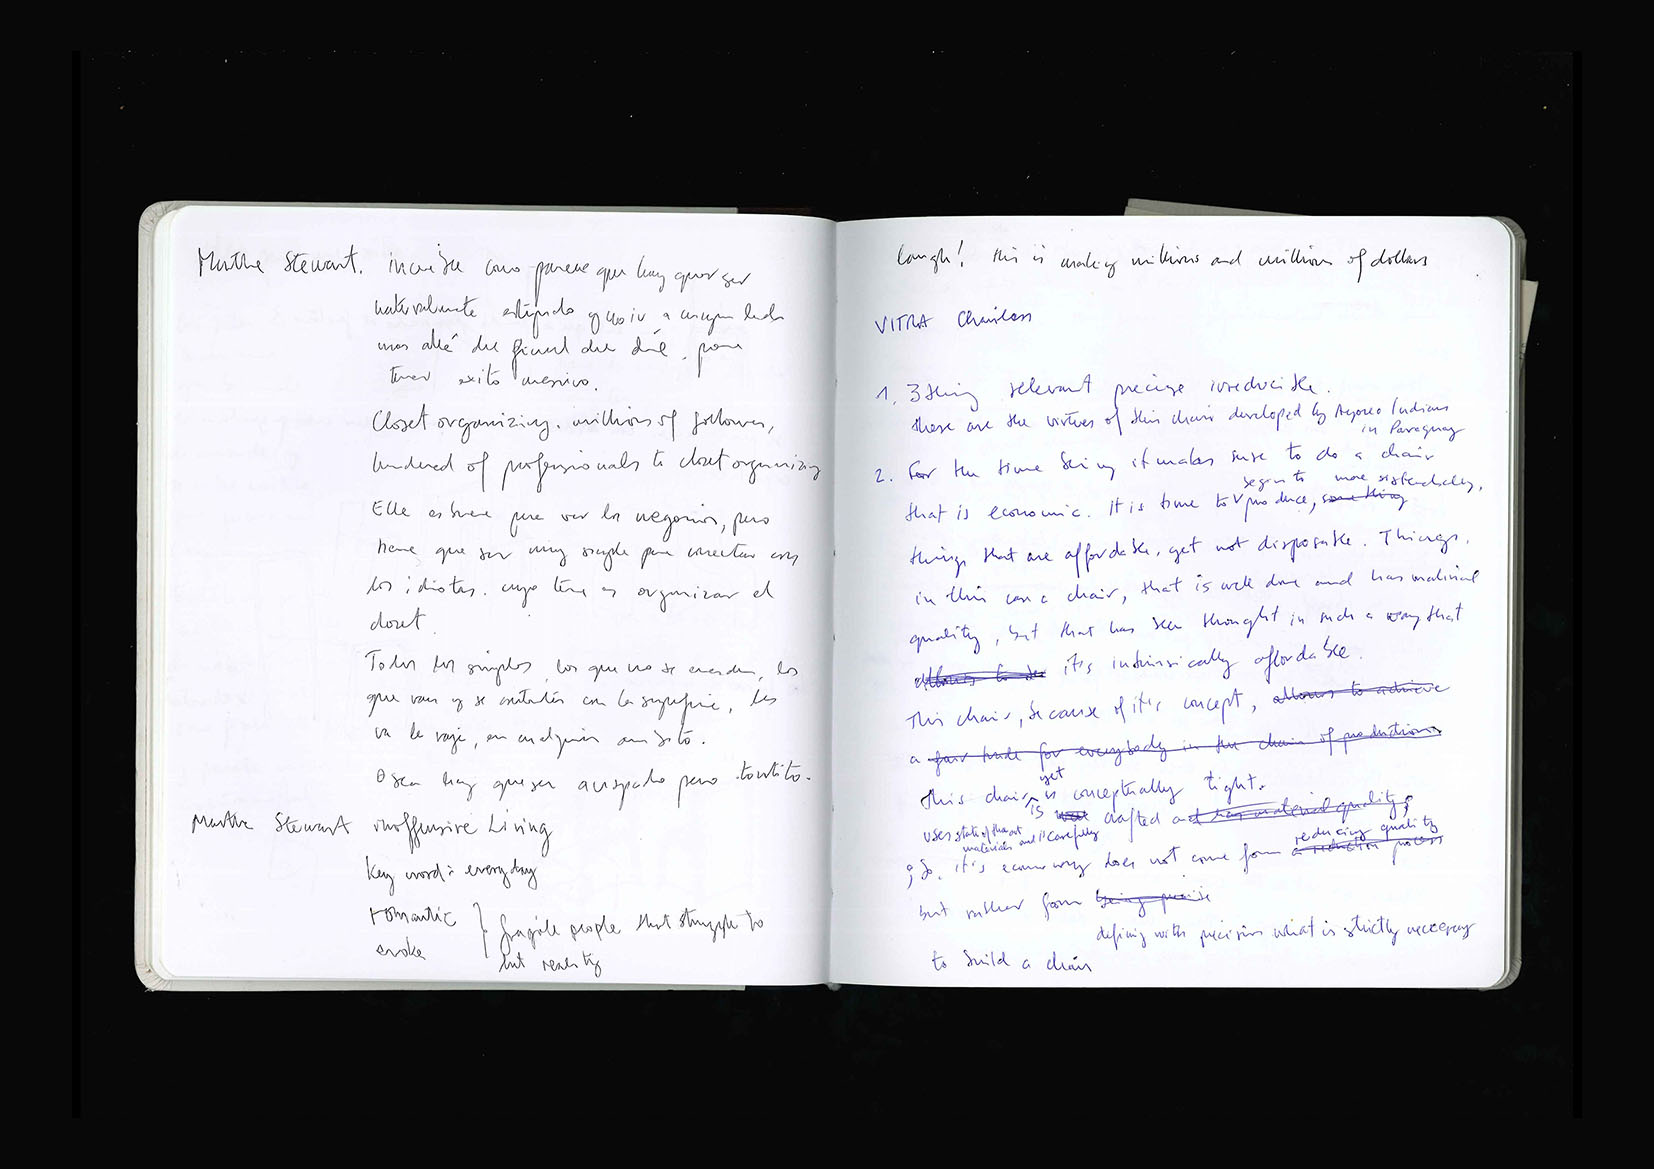 Martha Stewart. increible como parece que hay que ser
naturalmente estúpido y no ir a ningun lado
mas allá del            del        . para
tener exito masivo.
Closet organizing. millions of followers,
hundered of professionals to closet organizing
Ella es        para ver los negocios, pero
tiene que ser muy simple para conectar con
los idiotas. cuyo tema es organizar el
closet.
Todos los simples, los que no se enredan, los
que van y se             con la superficie, les
va la raja, en cualquier ambito.
O sea hay que ser avispado pero tontito.
Martha Stewart inoffensive Living
Key word: everyday
romantic } fragile people that struggle to
evoke
but reality
laugh! this is making millions and millions of dollars
VITRA Chairless
1. 3 thing relevant precise irreducible.
these are the virtues of this chair developed by Ayoreo Indians
in Paraguay
2. For the time being it makes sure to do a chair
begin to more sistendably,
that is economic. It is time to produce, something
things that are affordable, yet not disposable. Things,
in this case a chair, that is well done and has material
quality, but that has been thought in such a way that
allows to be it's intrinsically affordable.
This chair, because of it's concept, allows to achieve
a fair trade for everybody in the chain of production
yet
this chair is conceptually tight.
is        crafted and has material quality;
uses state of the art
materials and is carefully
reducing quality
; So, it's economy does not come from a reduction process
but rather from being precise
defining with precision what is strictly necessary
to build a chair